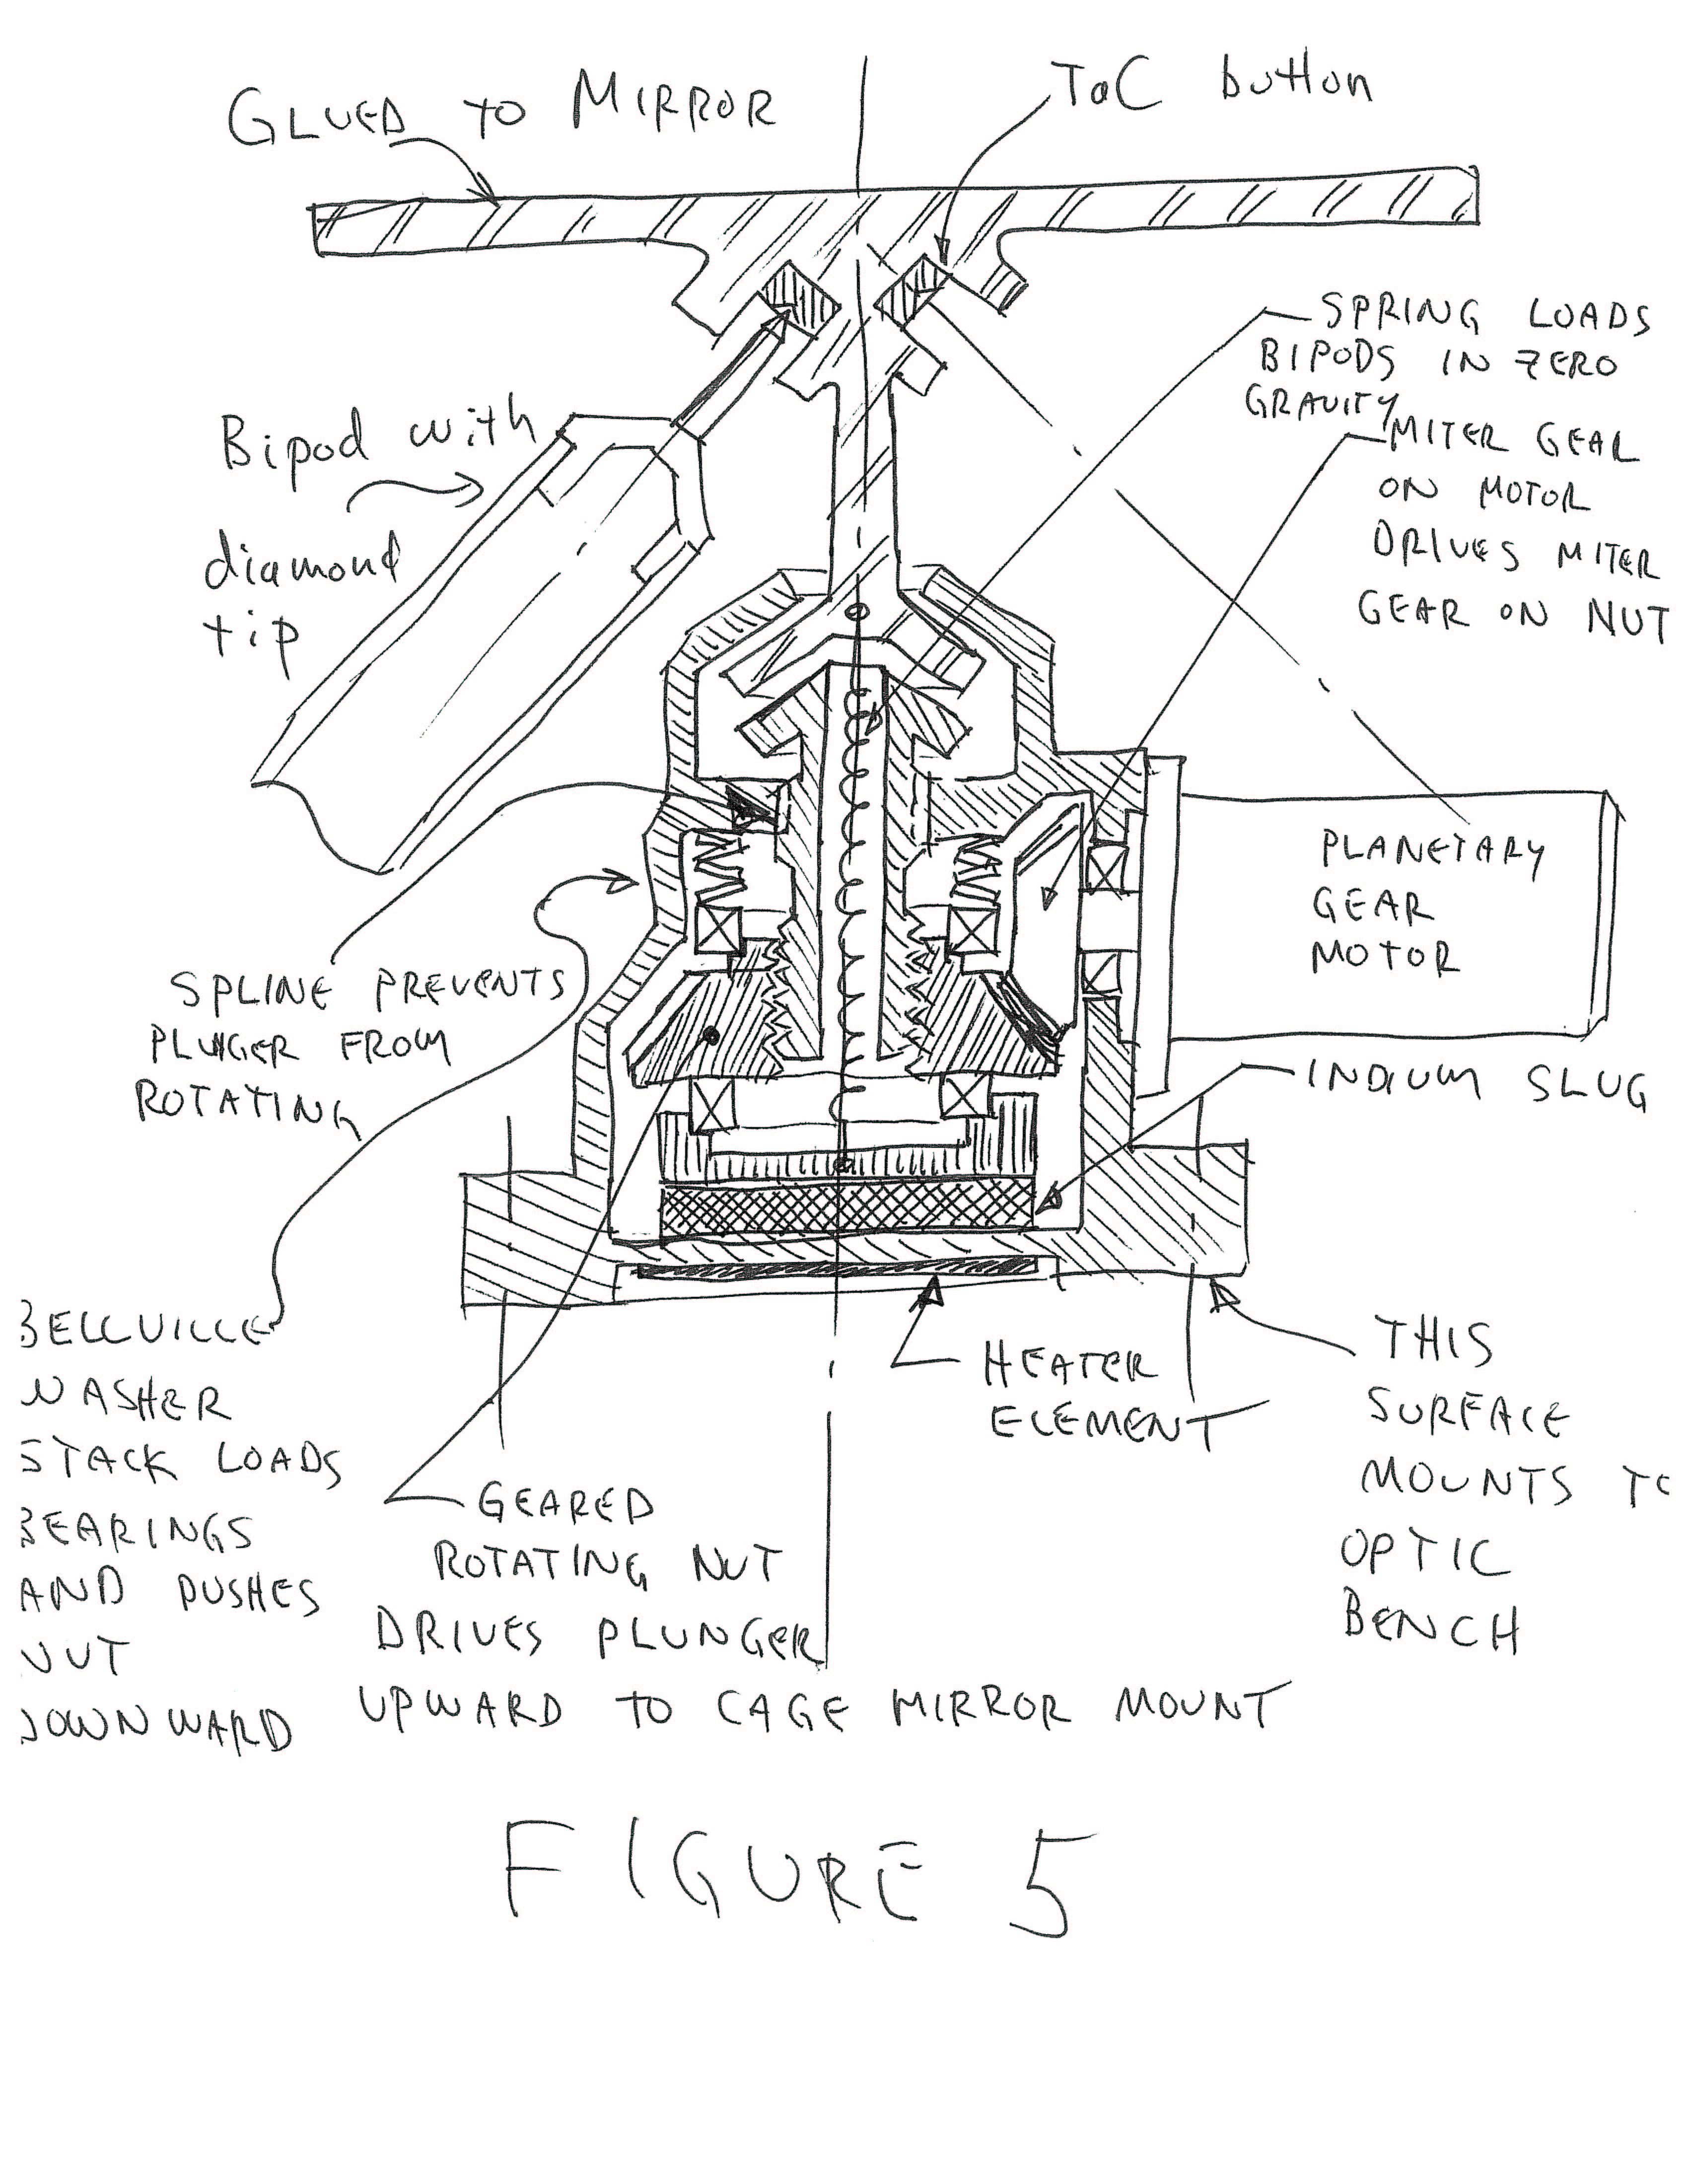 GLUED TO MIRROR
TaC button
SPRING LOADS
BIPODS IN ZERO
GRAVITY
MITER GEAR
ON MOTOR
DRIVES MITER
GEAR ON NUT
Bipod with
diamond
tip
PLANETARY
GEAR
MOTOR
SPLINE PREVENTS
PLUNGER FROM
ROTATING
INDIUM SLUG
BELLVILLE
WASHER
STACK LOADS
BEARINGS
AND PUSHES
NUT
DOWNWARD
HEATER
ELEMENT
THIS
SURFACE
MOUNTS TO
OPTIC
BENCH
GEARED
ROTATING NUT
DRIVES PLUNGER
UPWARD TO CAGE MIRROR MOUNT
FIGURE 5